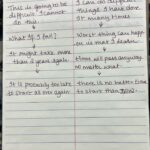 This is going to be
difficult I cannot
do this
What if I fail?
It might take more
than a year again.
It is probably too late
to start all over again
I can do difficult
things I have done
it many times
Worst thing can
happen is that I
time will pass anyway
no matter what
there is no better time
to start than NOW.